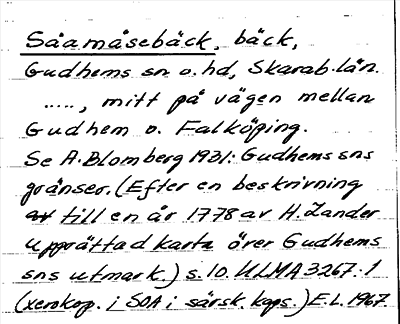 Såamåsebäck, bäck,
Gudhems sn o. hd, Skarab. län.
....., mitt på vägen mellan
Gudhem o. Falköping.
Se A. Blomberg 1931: Gudhems sns
gränser. (Efter en beskrivning
till en år 1778 av H. Zander
upprättad karta över Gudhems
sns utmark.) s. 10. ULMA 3267:1
(xerokop. i SOA i särsk. kaps.) E.L. 1967.